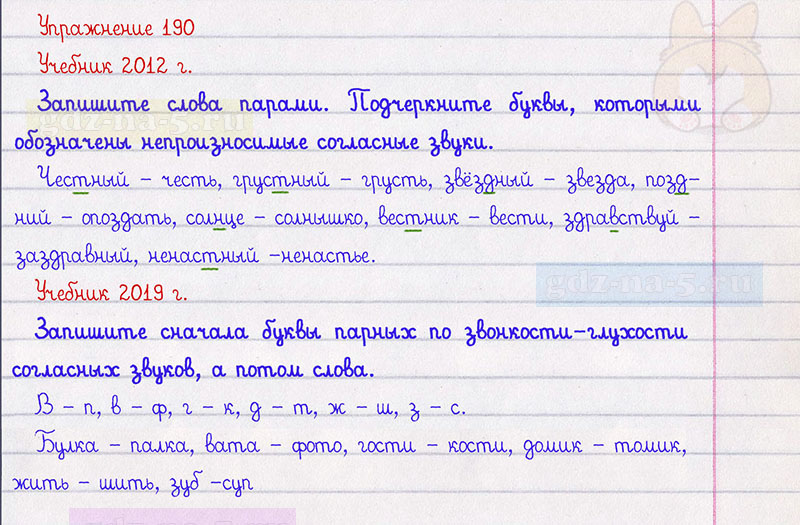 Упражнение 190
Учебник 2012 г.
Запишите слова парами. Подчеркните буквы, которыми
обозначены непроизносимые согласные звуки.
Честный – честь, грустный – грусть, звёздный – звезда, позд-
ний – опоздать, солнце – солнышко, вестник – вести, здравствуй –
заздравный, ненастный –ненастье.
gdz-na-5.ru
Учебник 2019 г.
Запишите сначала буквы парных по звонкости–глухости
согласных звуков, а потом слова.
В – п, в – ф, г – к, д – т, ж – ш, з – с.
Булка – палка, вата – фото, гости – кости, домик – томик,
жить – шить, зуб –суп